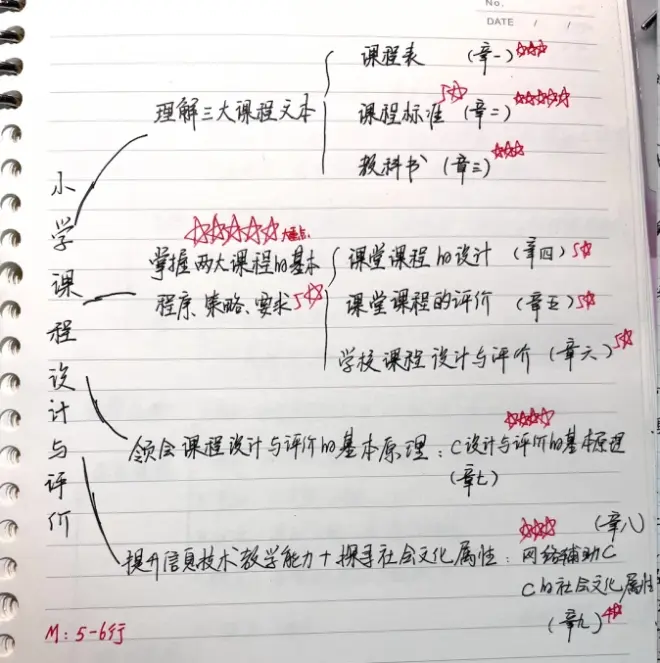 No.
DATE / /
小学课程设计与评价
理解三大课程文本
课程表 (章一) ☆☆☆
课程标准 5☆ (章二) ☆☆☆☆☆
教科书 (章三) ☆☆☆
☆☆☆☆☆ 大重点
掌握两大课程的基本
程序、策略、要求 5☆
课堂课程的设计 (章四) 5☆
课堂课程的评价 (章五) 5☆
学校课程设计与评价 (章六) 5☆
☆☆☆☆
领会课程设计与评价的基本原理：C设计与评价的基本原理
(章七)
☆☆☆ (章八)
提升信息技术教学能力+探寻社会文化属性：网络辅助C
C的社会文化属性
(章九) 4☆
M：5-6行